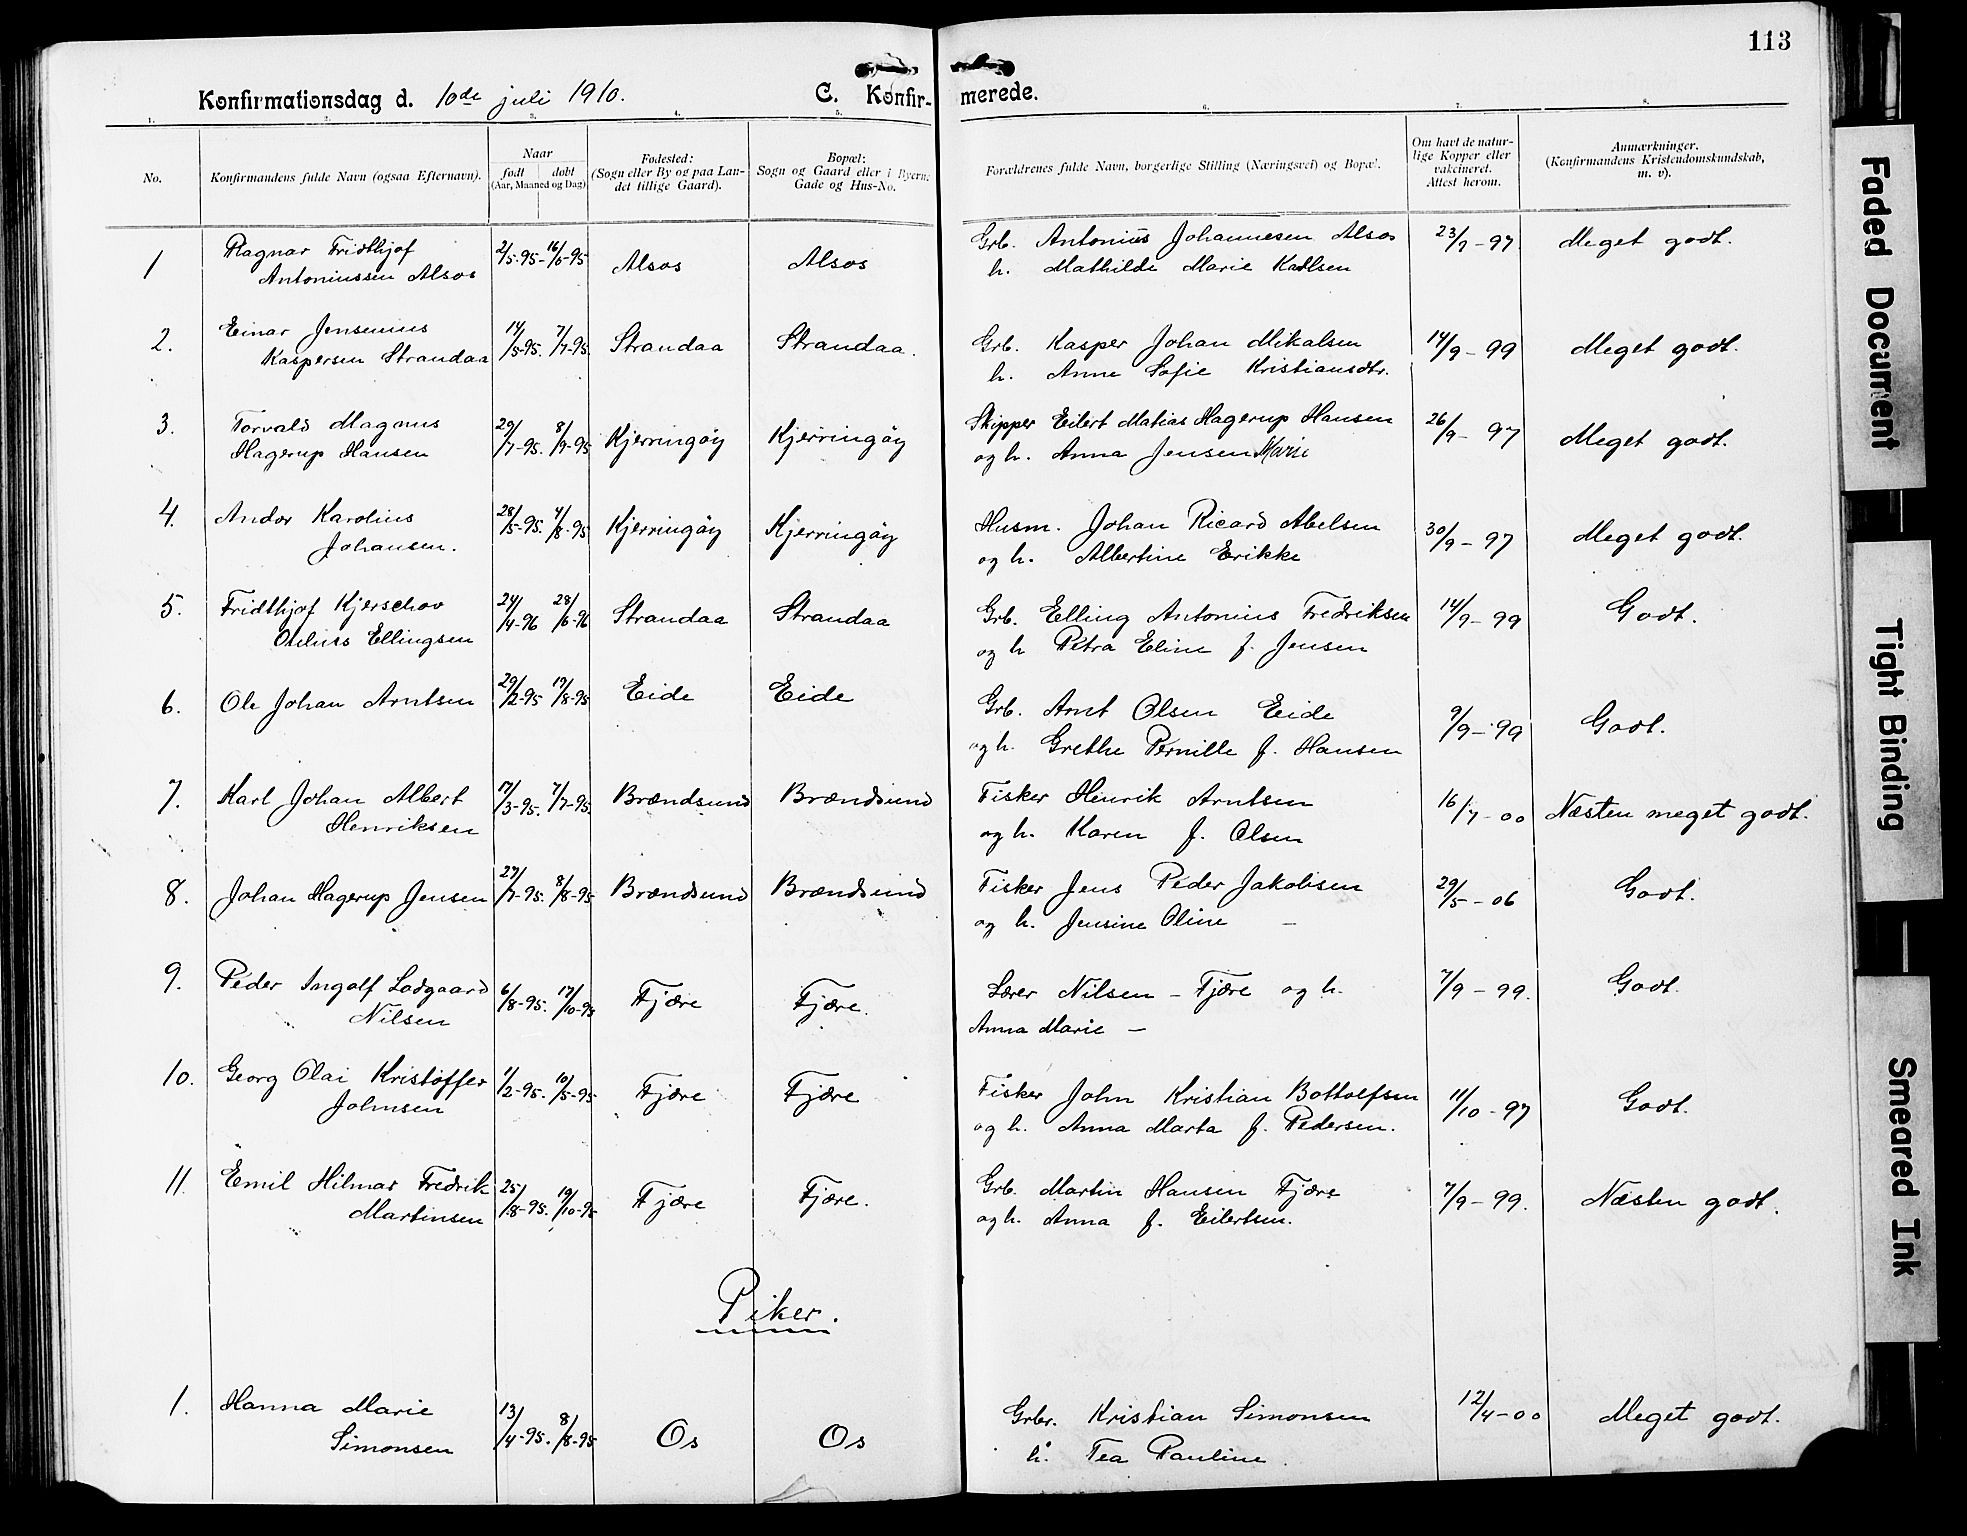 113
Konfirmationsdag d. 10de juli 1910. C. Konfir- merede.
1. 2. 3. 4. 5. 6. 7. 8.
No.
Konfirmandens fulde Navn (ogsaa Efternavn).
Naar
født døbt
(Aar, Maaned og Dag)
Fødested:
(Sogn eller By og paa Lan-
det tillige Gaard).
Bopæl:
Sogn og Gaard eller i Byern:
Gade og Hus-No.
Forældrenes fulde Navn, borgerlige Stilling (Næringsvei) og Bopæl.
Om havt de natur-
lige Kopper eller
vakcineret.
Attest herom.
Anmærkninger.
(Konfirmandens Kristendomskundskab,
m. v).
1 Ragnar Fridthjof 2/5-95- 16/6-95 Alsos Alsos Grb. Antonius Johannesen Alsos 23/9-97 Meget godt.
Antoniussen Alsos h. Mathilde Marie Karlsen
2. Einar Jensenius 14/5-95. 7/7-95. Strandaa Strandaa. Grb. Kasper Johan Mikalsen 14/9-99 Meget godt.
Kaspersen Strandaa h. Anne Sofie Kristiansdtr.
3. Torvald Magnus 29/7-95. 8/9-95 Kjerringöy Kjerringöy Skipper Eilert Matias Hagerup Hansen 26/9-97 Meget godt.
Hagerup Hansen og h. Anna Jensen Marie
4. Andor Karolius 28/5-95. 4/8-95 Kjerringöy Kjerringöy Husm. Johan Ricard Abelsen 30/9-97 Meget godt.
Johansen. og h. Albertine Erikke
5. Fridthjof Kjerschov 24/4-96 28/6-96 Strandaa Strandaa Grb. Elling Antonius Fredriksen 14/9-99 Godt.
Ellingsen og h Petra Eline f. Jensen
6. Ole Johan Arntsen 29/12-95 17/8-95 Eide Eide Grb. Arnt Olsen Eide 9/9-99 Godt.
og h. Grethe Pernille f. Hansen
7. Karl Johan Albert 17/3-95. 7/7-95. Brændsund Brændsund Fisker Henrik Arntsen 16/7-00 Næsten meget godt.
Henriksen og h. Karen f. Olsen
8. Johan Hagerup Jensen 27/7-95. 8/8-95 Brændsund Brændsund Fisker Jens Peder Jakobsen 29/5-06 Godt.
og h. Jensine Oline –
9. Peder Ingolf Lodgaard 6/8-95. 17/10-95 Fjære Fjære. Lærer Nilsen – Fjære og h. 7/9-99. Godt.
Nilsen Anna Marie –
10. Georg Olai Kristoffer 1/2-95. 10/5-95 Fjære Fjære Fisker John Kristian Bottolfsen 11/10-97 Godt.
Johnsen og h. Anna Marta f. Pedersen.
11. Emil Hilmar Fredrik 25/8-95. 19/10-95 Fjære Fjære. Grb. Martin Hansen Fjære 7/9-99. Næsten godt.
Martinsen og h. Anna f. Eilertsen.
Piker.
1. Hanna Marie 13/4-95. 8/8-95 Os Os Grbr. Kristian Simonsen 12/4-00 Meget godt.
Simonsen h. Tea Pauline
Faded Document
Tight Binding
Smeared Ink